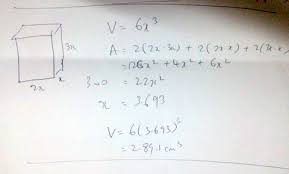 V = 6x³
3x
x
2x
A = 2(2x·3x) + 2(2x·x) + 2(3x·x)
= 12x² + 4x² + 6x²
300 = 22x²
x = 3.693
V = 6(3.693)³
= 289.1 cm³